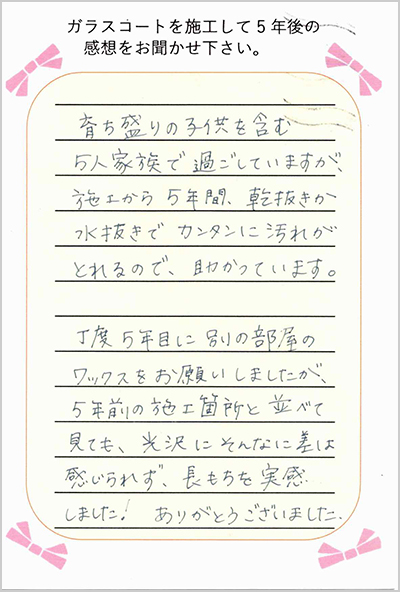 ガラスコートを施工して５年後の
感想をお聞かせ下さい。
育ち盛りの子供を含む
5人家族で過ごしていますが、
施工から5年間、乾抜きか
水抜きでカンタンに汚れが
とれるので、助かっています。
丁度5年目に別の部屋の
ワックスをお願いしましたが、
5年前の施工箇所と並べて
見ても、光沢にそんなに差は
感じられず、長もちを実感
しました! ありがとうございました.